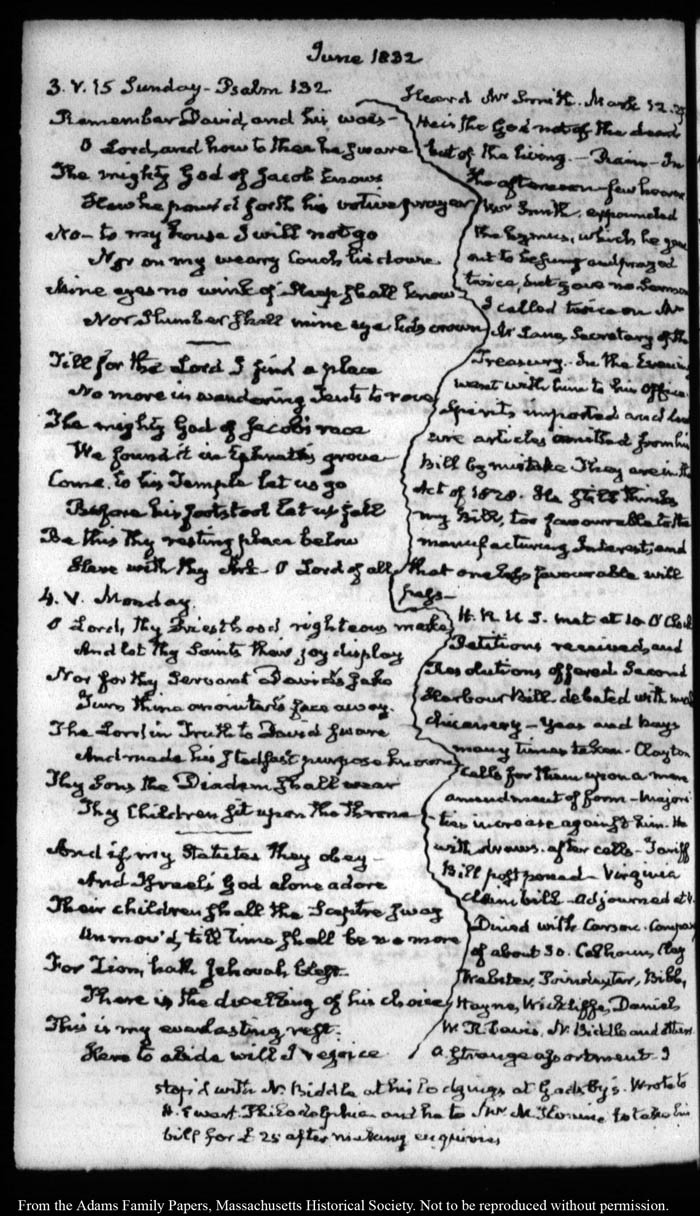 June 1832
3. V. 15 Sunday - Psalm 132
Remember David, and his woes -
O Lord, and how to thee he sware
The mighty God of Jacob knows
How he pour'd forth his votive prayer
No - to my house I will not go
Nor on my weary couch lie down
Mine eyes no wink of Sleep shall know
Nor Slumber shall mine eye lids crown
Till for the Lord I find a place
No more in wandering Tents to rove
The mighty God of Jacob's race
We found it in Ephrath's grove
Come, to his Temple let us go
Before his footstool let us fall
Be this thy resting place below
Here with thy Ark - O Lord of all
4. V. Monday.
O Lord, thy Priesthood righteous make
And let thy Saints their joy display
Nor for thy Servant David's sake
Turn thine anointed's face away.
The Lord in Truth to David sware
And made his stedfast purpose known
Thy Sons the Diadem shall wear
Thy Children sit upon the Throne
And if my Statutes they obey -
And Israel's God alone adore
Their children shall the Sceptre sway
Unmov'd, till time shall be no more
For Zion, hath Jehovah blest
There is the dwelling of his choice
This is my everlasting rest.
Here to abide will I rejoice
Heard Mr Smith. Mark 12.
He is the God not of the dead
but of the living. - Rain - In
the afternoon few hearers
Mr Smith, expounded
the hymns, which he gave
out to be sung and prayed
twice, but gave no Sermon
I called twice on Mr
McLane, Secretary of the
Treasury. In the Evening
went with him to his Office.
Spirits imported and
articles omitted from his
Bill by mistake They are in the
Act of 1828. He still thinks
my Bill, too favourable to the
manufacturing Interest; and
that one less favourable will
pass -
H. R. U. S. met at 10 O'Clock
Petitions received, and
Resolutions offered Second
Harbour Bill debated with much
chicanery - Yeas and Nays
many times taken - Clayton
calls for them upon a mere
amendment of form - Majori
ties increase against him. He
withdraws. after calls - Tariff
Bill postponed - Virginia
claim bill - adjourned at
Dined with Carson. Company
of about 30. Calhoun, Clay
Webster, Poindexter, Bibb,
Hayne, Wickliffe, Daniel
W. R. Davis, N. Biddle and others
a strange assortment. I
stop'd with N. Biddle at his lodgings at Gadsby's. Wrote to
Philadelphia and he to Mr to take his
bill for £ 25 after making enquiries
From the Adams Family Papers, Massachusetts Historical Society. Not to be reproduced without permission.